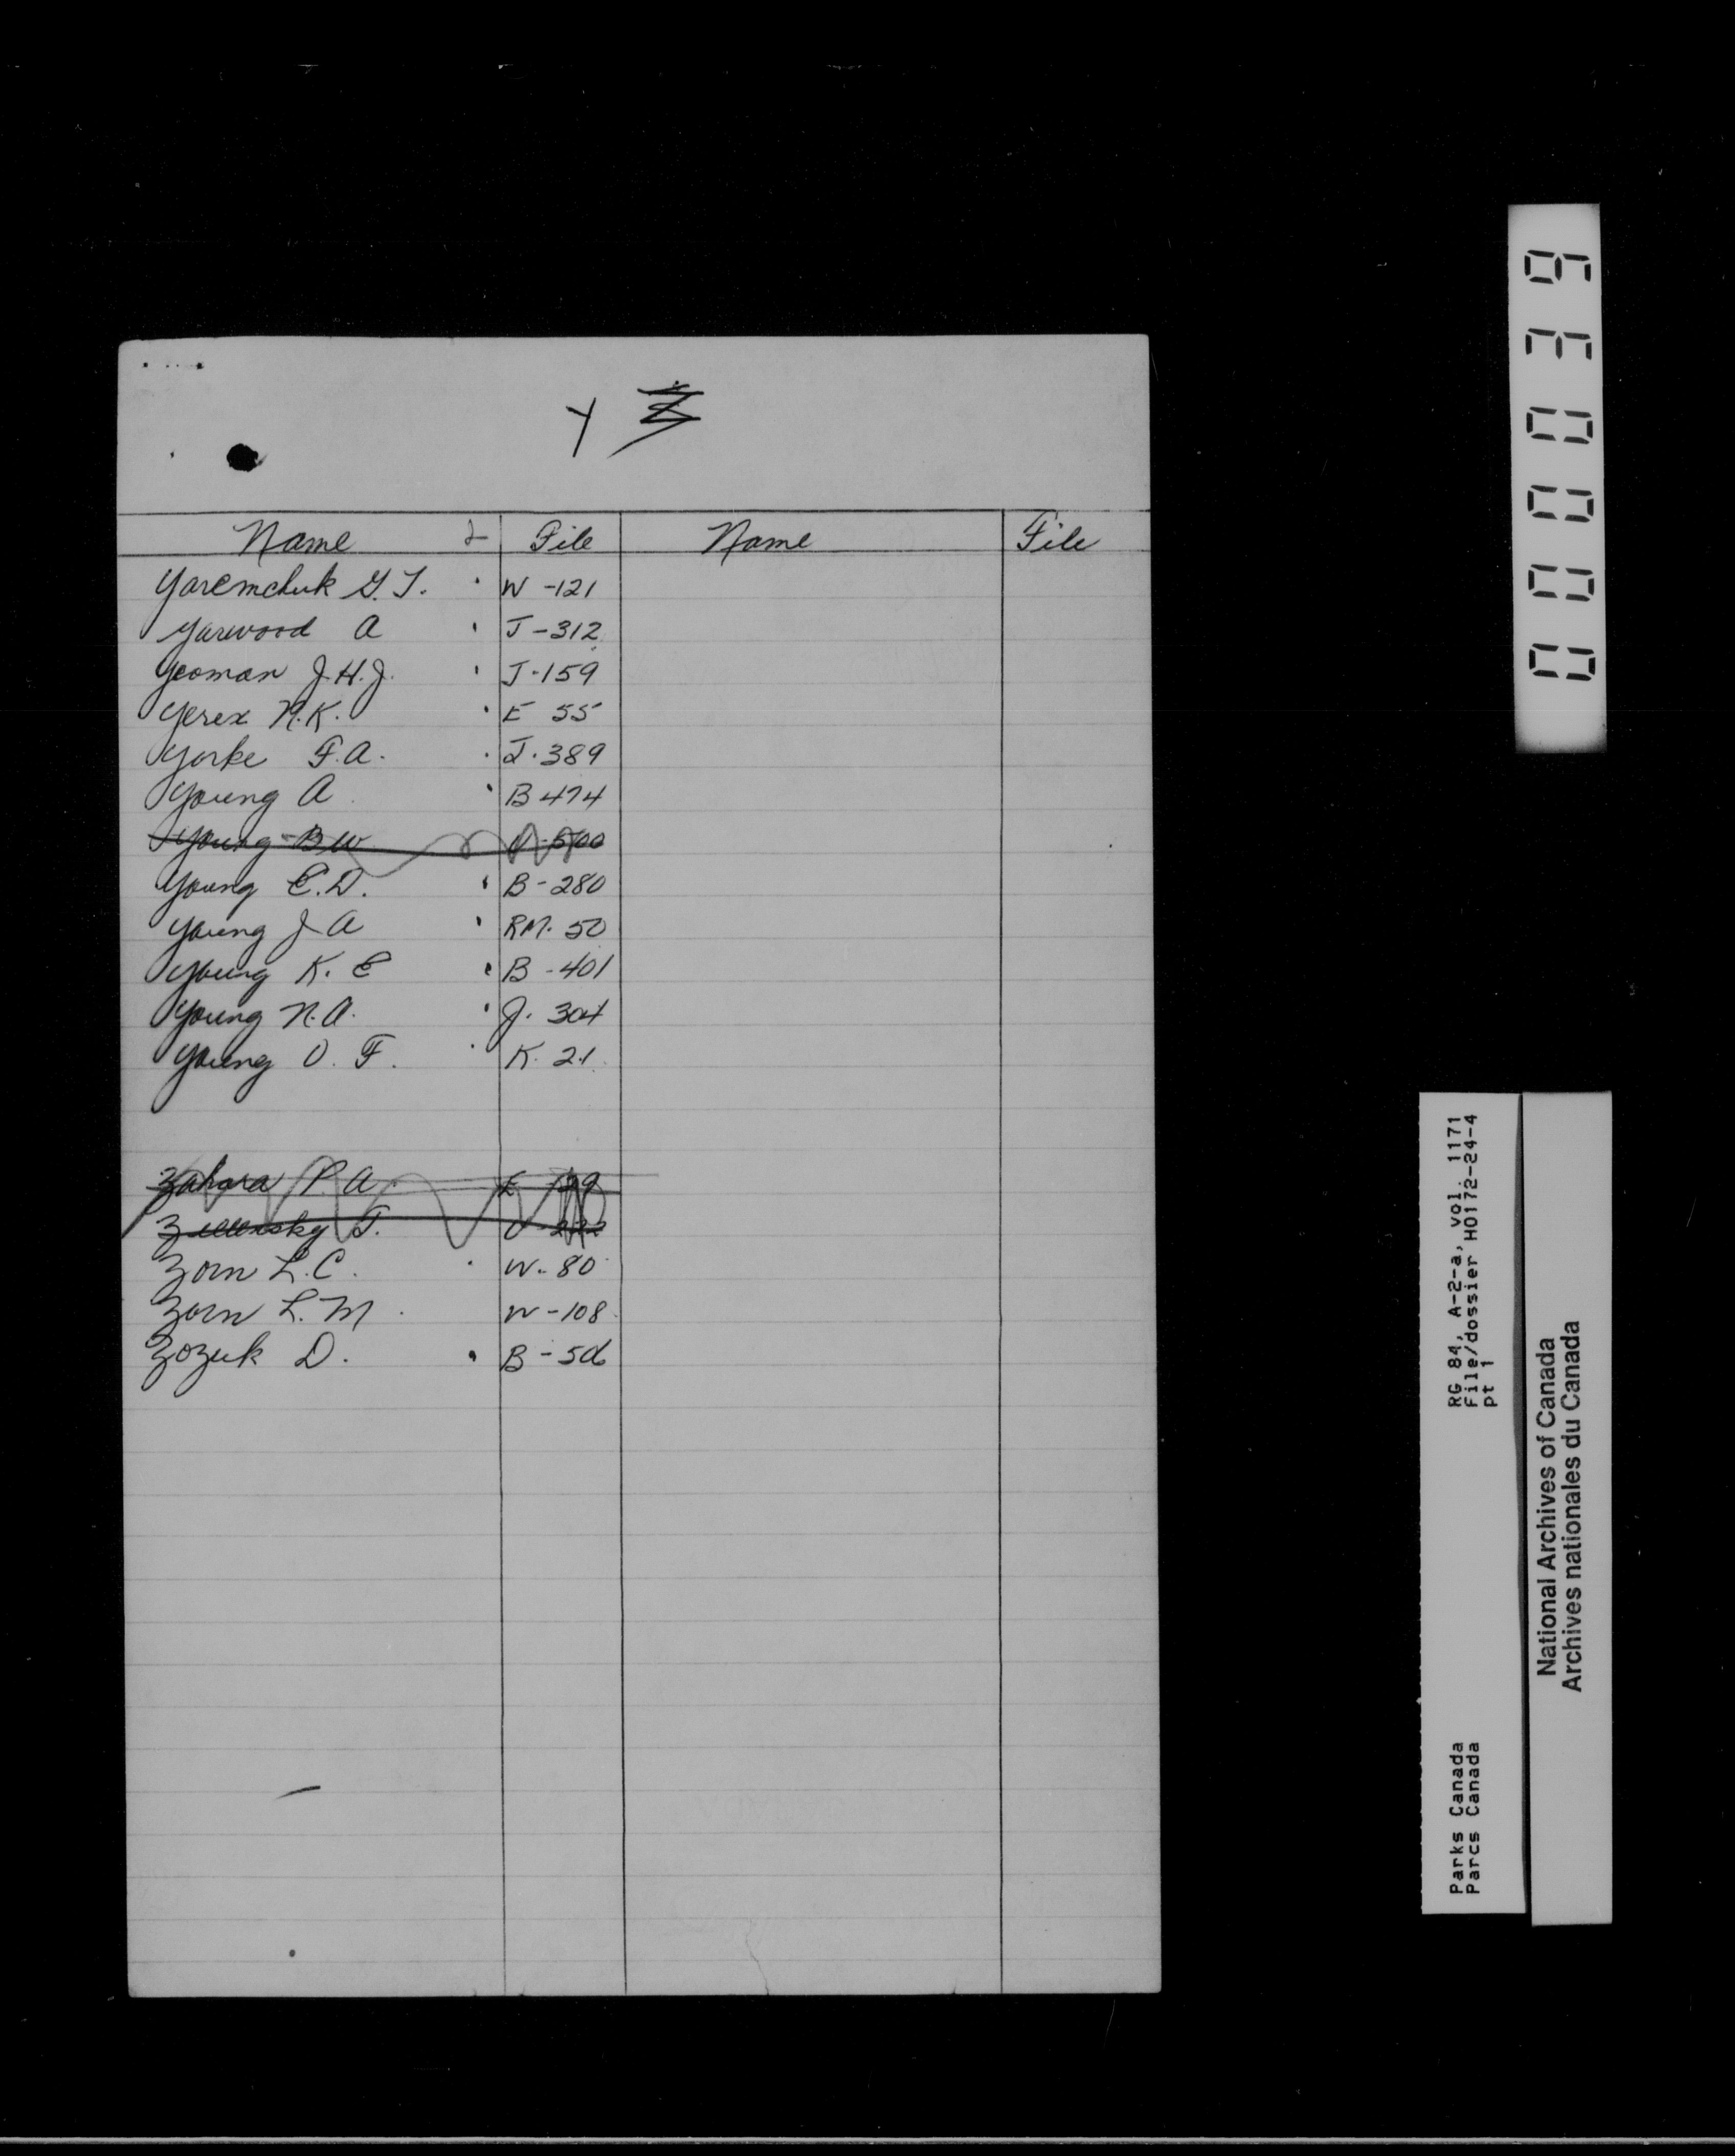 Y Z
Name File Name File
Yaremchuk G.T. W-121
Yarwood A J-312
Yeoman J.H.J. J-159
Yerex N.K. E 55
Yorke F.A. J-389
Young A B 474
Young B W 500
Young E.D. B-280
Young J A RM. 50
Young K. E B-401
Young N.A. J. 304
Young O. F. K. 21
Zahara P. A. E 29
J. 222
Zorn L.C. W-80
Zorn L.M. W-108
Zozuk D. B-506
000039
RG 84, A-2-a, vol. 1171
File/dossier H0172-24-4
pt 1
Parks Canada
Parcs Canada
National Archives of Canada
Archives nationales du Canada